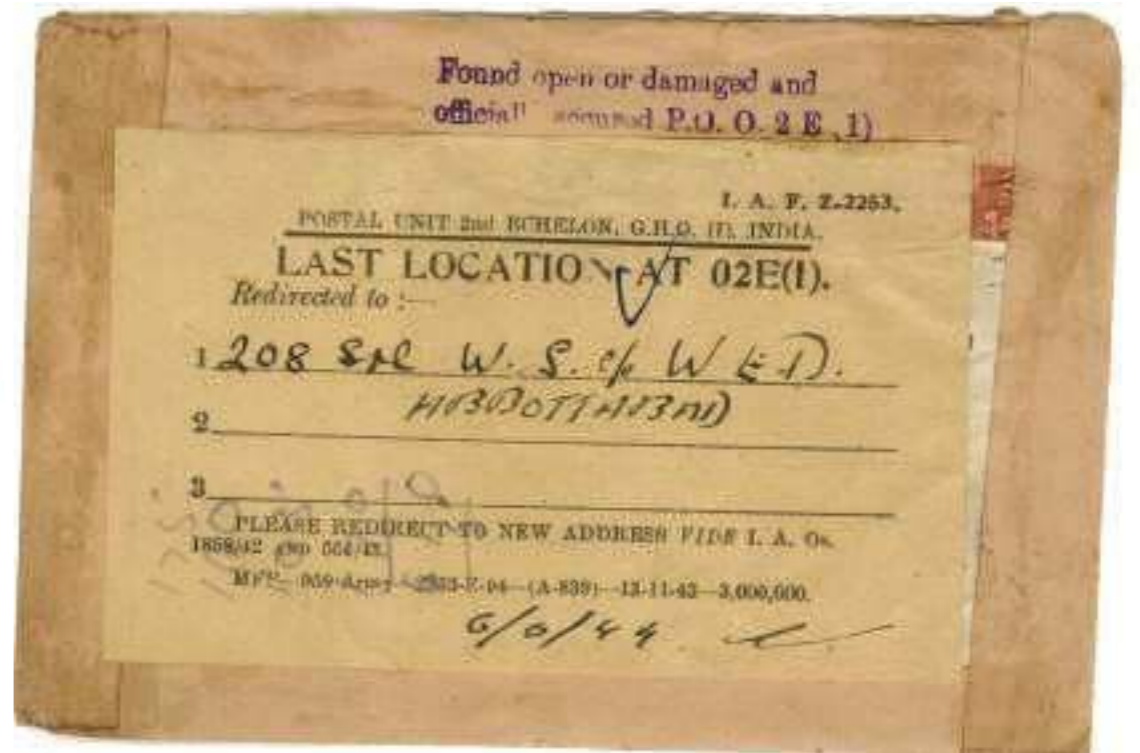 Found open or damaged and
secured P.O. O. 2 E 1)
I. A. F. Z-2253.
POSTAL UNIT 2nd ECHELON, G.H.Q. (I), INDIA.
LAST LOCATION AT 02E(I).
Redirected to :—
1 208 W. S. c/o W E D.
ABBOTTABAD
2
3
PLEASE REDIRECT TO NEW ADDRESS VIDE I. A. Os.
1858/42 AND
959 Army (A-839)—13-11-43—3,000,000.